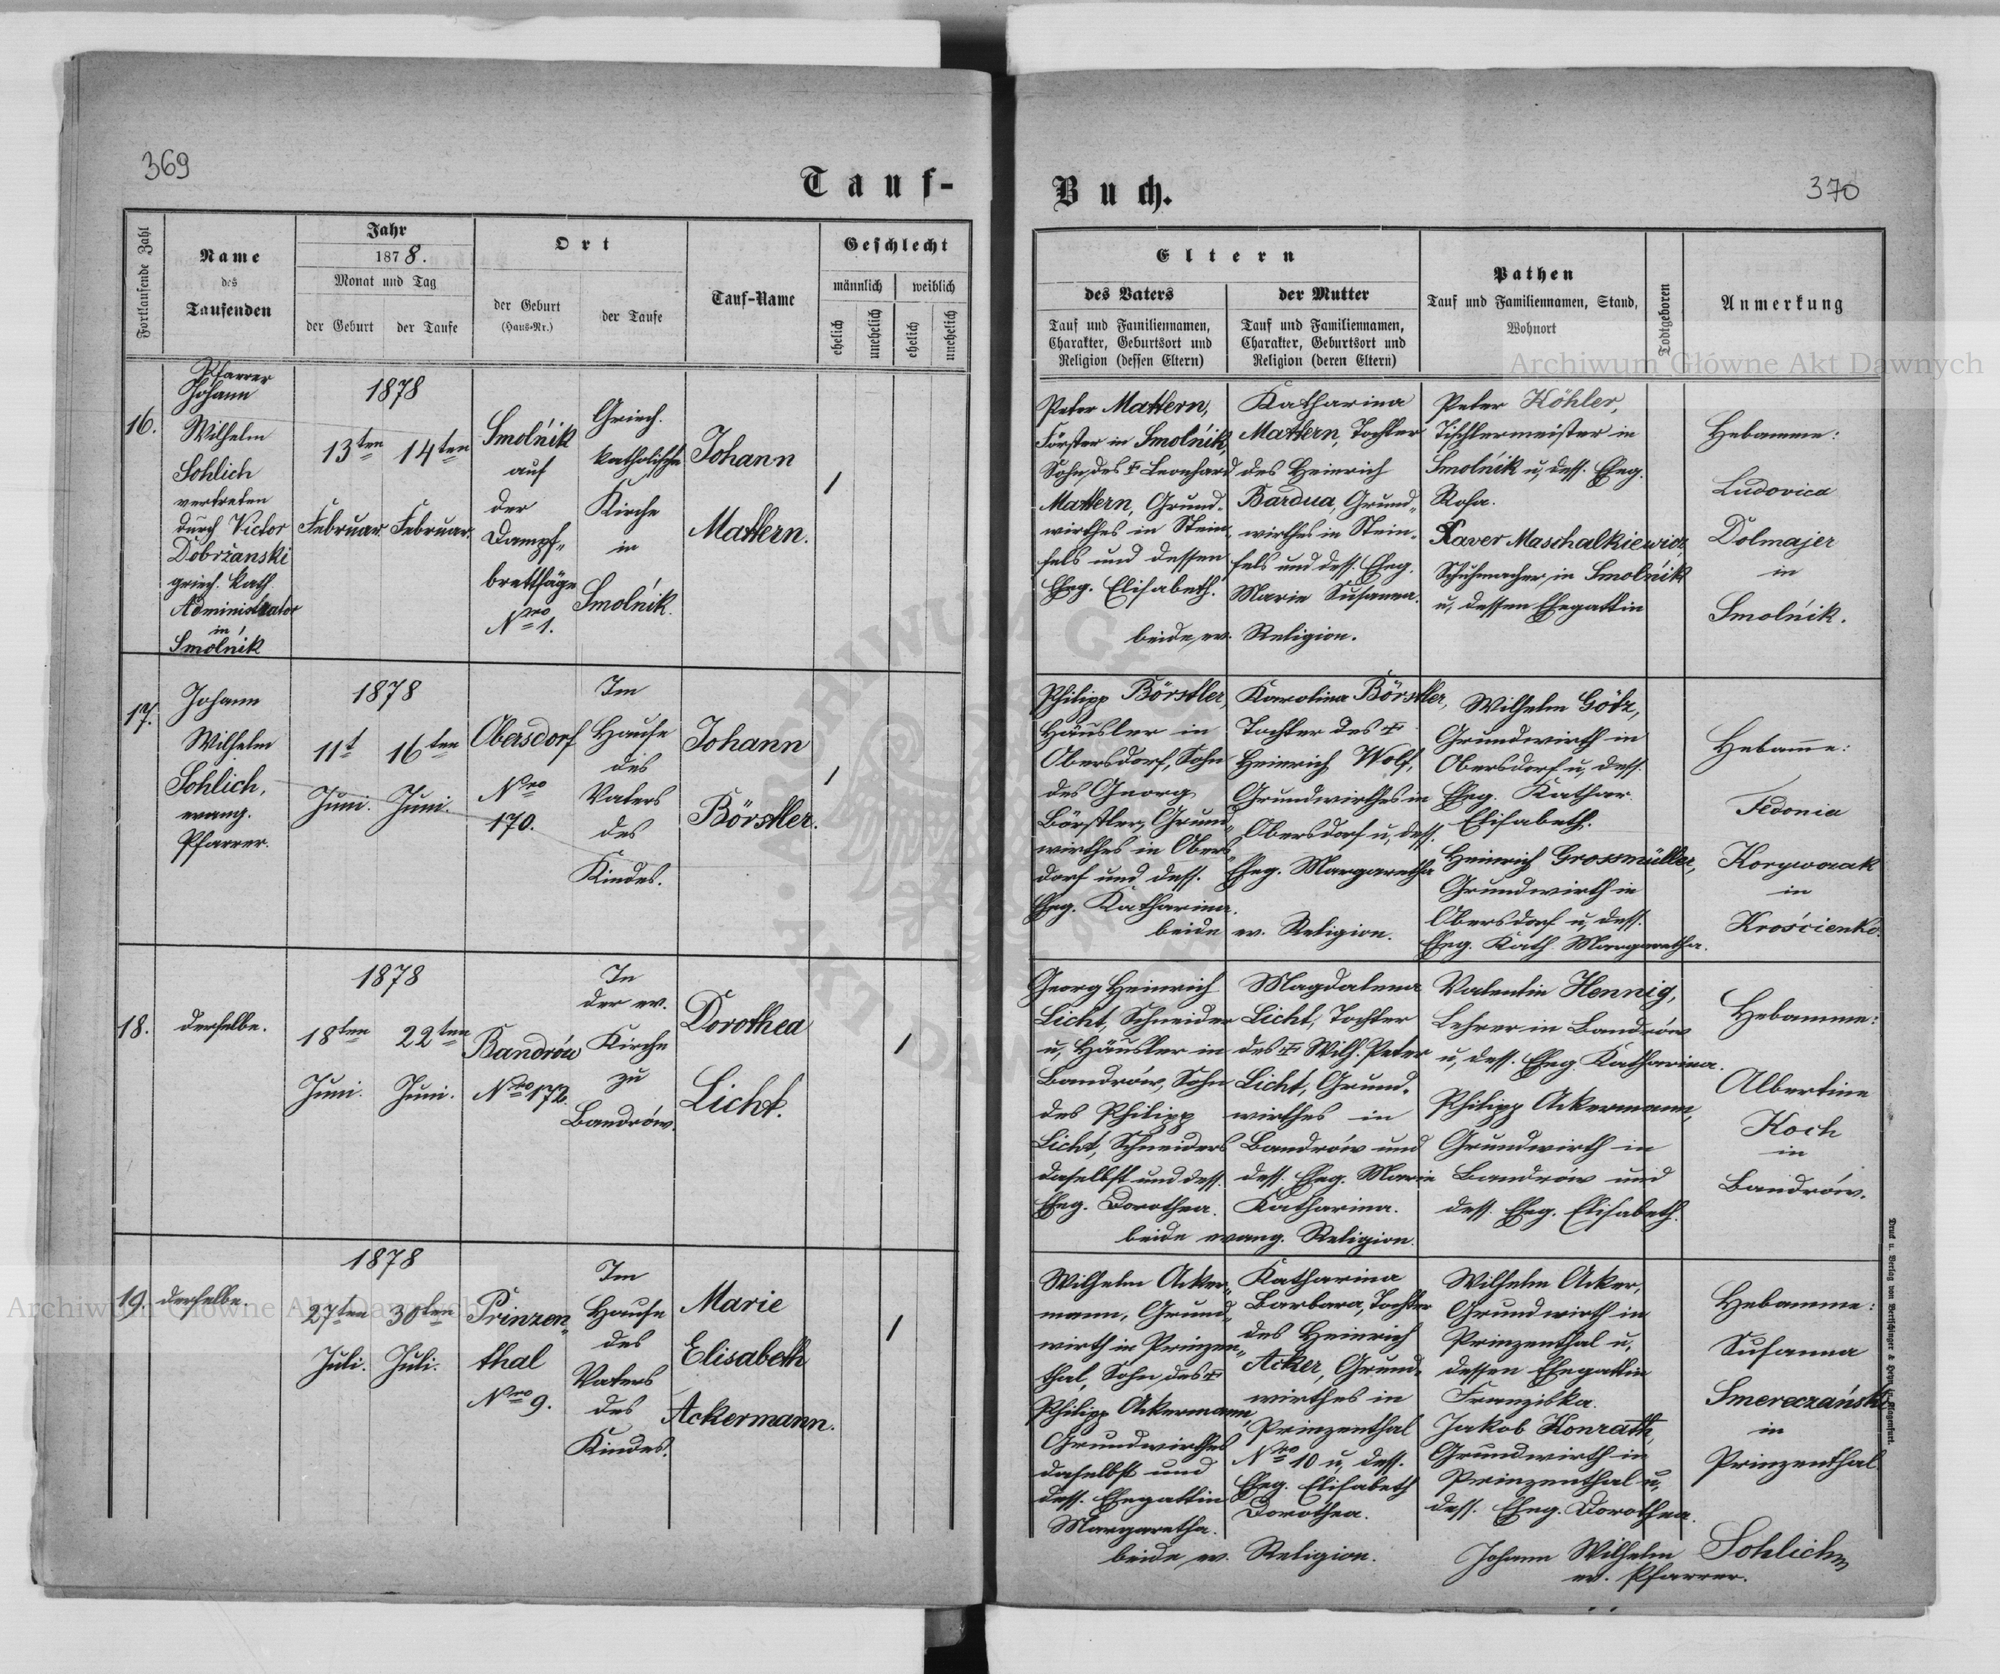 369
Tauf-
Fortlaufende Zahl
Name
des
Taufenden
Jahr
1878.
Monat und Tag
der Geburt
der Taufe
Ort
der Geburt
(Haus-Nr.)
der Taufe
Tauf-Name
Geschlecht
männlich
weiblich
ehelich
unehelich
ehelich
unehelich
16.
Pfarrer
Johann
Wilhelm
Sohlich
vertreten
durch Victor
Dobrzanski
griech. kath.
Administrator
in
Smolnik
1878
13ten
Februar.
14ten
Februar.
Smolnik
auf
der
Dampf-
brettsäge
Nro 1.
Griech.
katholische
Kirche
in
Smolnik.
Johann
Mattern.
1
17.
Johann
Wilhelm
Sohlich,
evang.
Pfarrer.
1878
11t
Juni.
16ten
Juni.
Obersdorf
Nro
170.
Im
Hause
des
Vaters
des
Kindes.
Johann
Börstler.
1
18.
derselbe.
1878
18ten
Juni.
22ten
Juni.
Bandrów
Nro 172.
In
der ev.
Kirche
zu
Bandrów.
Dorothea
Licht.
1
19.
derselbe.
1878
27ten
Juli.
30ten
Juli.
Prinzen-
thal
Nro 9.
Im
Hause
des
Vaters
des
Kindes.
Marie
Elisabeth
Ackermann.
1
Buch.
370
Eltern
des Vaters
Tauf und Familiennamen,
Charakter, Geburtsort und
Religion (dessen Eltern)
der Mutter
Tauf und Familiennamen,
Charakter, Geburtsort und
Religion (deren Eltern)
Pathen
Tauf und Familiennamen, Stand,
Wohnort
Todtgeboren
Anmerkung
Peter Mattern,
Förster in Smolnik,
Sohn des † Leonhard
Mattern, Grund-
wirthes in Stein-
fels und dessen
Eheg. Elisabeth.
Katharina
Mattern, Tochter
des Heinrich
Bardua, Grund-
wirthes in Stein-
fels und dess. Eheg.
Marie Susanna.
beide ev. Religion.
Peter Köhler,
Tischlermeister in
Smolnik u. dess. Eheg.
Rosa.
Xaver Maschalkiewicz
Schuhmacher in Smolnik
u. dessen Ehegattin
Hebamme:
Ludovica
Dolmajer
in
Smolnik.
Philipp Börstler,
Häusler in
Obersdorf, Sohn
des Georg
Börstler, Grund-
wirthes in Obers-
dorf und dess.
Eheg. Katharina.
Karolina Börstler,
Tochter des †
Heinrich Wolf,
Grundwirthes in
Obersdorf u. dess.
Eheg. Margaretha
beide ev. Religion.
Wilhelm Götz,
Grundwirth in
Obersdorf u. dess.
Eheg. Kathar.
Elisabeth.
Heinrich Grossmüller,
Grundwirth in
Obersdorf u. dess.
Eheg. Kath. Margaretha.
Hebamme:
Fedonia
in
Krościenko.
Georg Heinrich
Licht, Schneider
u. Häusler in
Bandrów, Sohn
des Philipp
Licht, Schneiders
daselbst und dess.
Eheg. Dorothea.
Magdalena
Licht, Tochter
des † Wilh. Peter
Licht, Grund-
wirthes in
Bandrów und
dess. Eheg. Marie
Katharina.
beide evang. Religion.
Valentin Hennig,
Lehrer in Bandrów
u. dess. Eheg. Katharina.
Philipp Ackermann,
Grundwirth in
Bandrów und
dess. Eheg. Elisabeth.
Hebamme:
Albertine
Koch
in
Bandrów.
Wilhelm Acker-
mann, Grund-
wirth in Prinzen-
thal, Sohn des †
Philipp Ackermann,
Grundwirthes
daselbst und
dess. Ehegattin
Margaretha.
Katharina
Barbara, Tochter
des Heinrich
Acker, Grund-
wirthes in
Prinzenthal
Nro 10 u. dess.
Eheg. Elisabeth
Dorothea.
beide ev. Religion.
Wilhelm Acker,
Grundwirth in
Prinzenthal u.
dessen Ehegattin
Franziska.
Jakob Konrath,
Grundwirth in
Prinzenthal u.
dess. Eheg. Dorothea.
Hebamme:
Susanna
Smereczański
in
Prinzenthal.
Johann Wilhelm Sohlich
ev. Pfarrer.
Archiwum Główne Akt Dawnych
Archiwum Główne Akt Dawnych